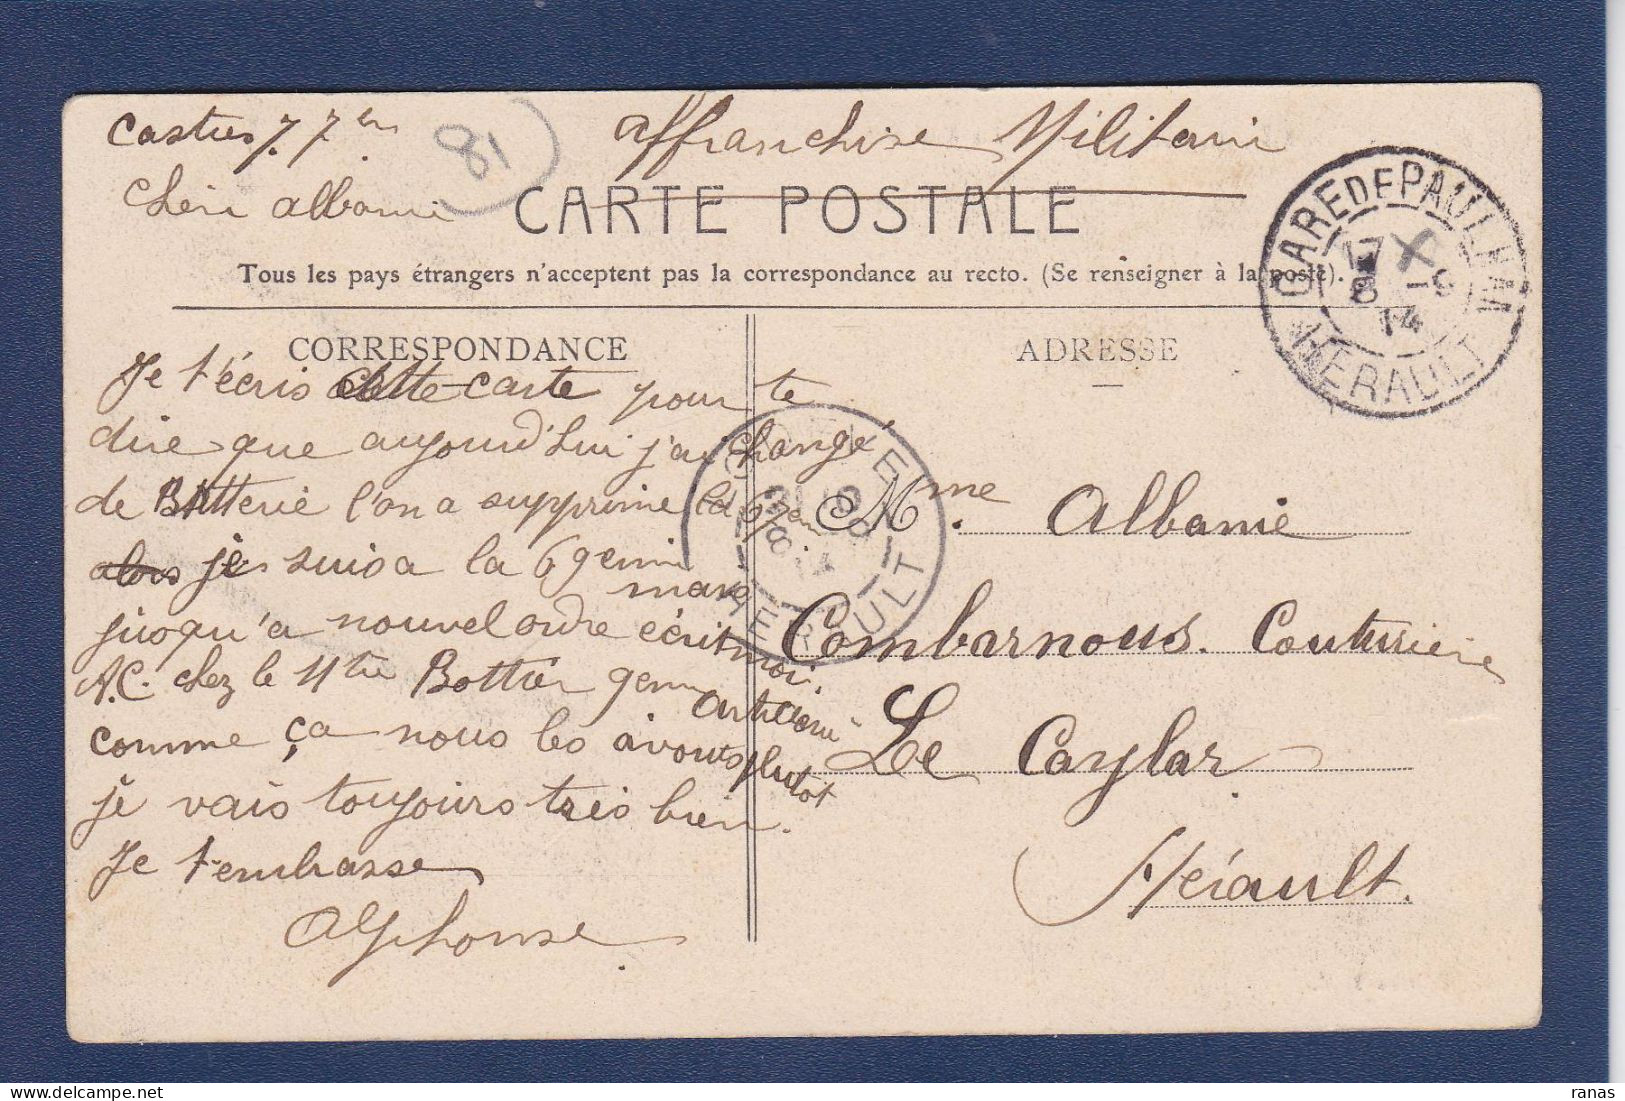 Castres 7. 7bre
affranchise Militaire
81
cheri albanie
CARTE POSTALE
Tous les pays étrangers n'acceptent pas la correspondance au recto. (Se renseigner à la poste).
GARE DE PAULHAN
17
8 -9
14
HERAULT
CORRESPONDANCE
ADRESSE
Je t'écris cette carte pour te
dire que aujourd'hui j'ai changé
de Batterie l'on a supprime la 67em
alors je suis a la 69em
mais
jusqu'a nouvel ordre écrit moi
A.C. chez le Mtre Bottier 9em
artillerie
comme ça nous les avons plutôt
je vais toujours très bien.
Je t'embrasse
Alphonse
HERAULT
Mme. Albanie
Combarnous. Couturière
Le Caylar.
Hérault.
ranas